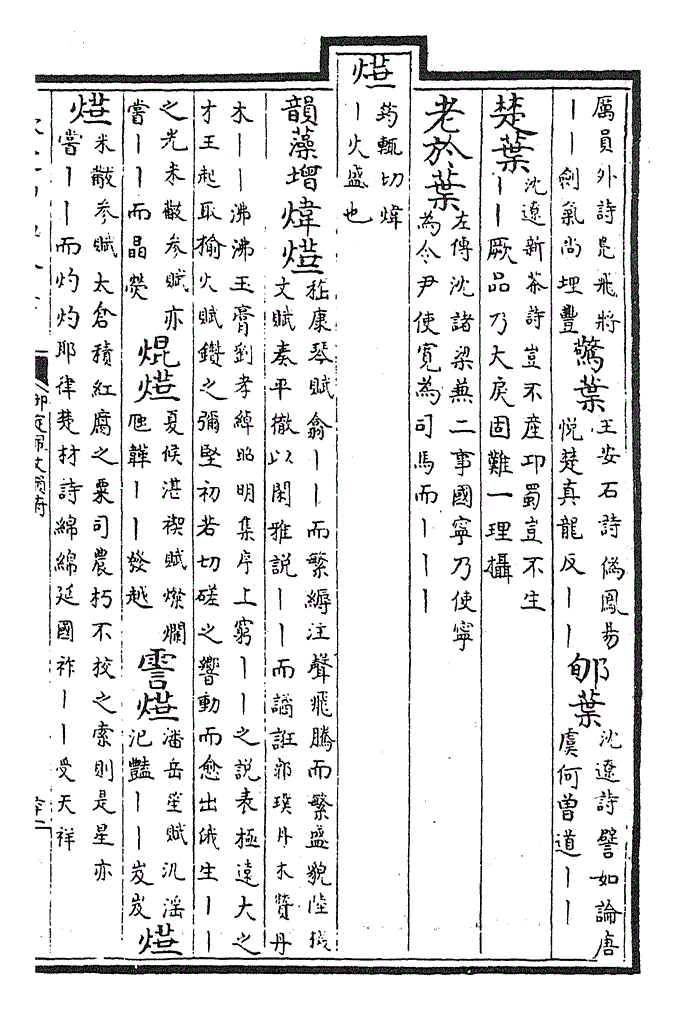 厲員外詩是飛將
丨丨劍氣尚埋豐
驚葉
王安石詩偽鳳易
悅楚真龍反丨丨
郇葉
沈遼詩譬如論唐
虞何曾道丨丨
楚葉
沈遼新茶詩豈不產卭蜀豈不生
丨丨厥品乃大戾固難一理攝
老於葉
左傳沈諸梁兼二事國寧乃使寧
為令尹使寬為司馬而丨丨丨
爗
筠輒切煒
丨火盛也
韻藻增煒爗
嵇康琴賦翕丨丨而繁縟注聲飛騰而繁盛貌陸機
文賦奏平徹以閑雅説丨丨而譎誑郭璞丹木贊丹
木丨丨沸沸玉膏劉孝綽昭明集序上窮丨丨之説表極遠大之
才王起取榆火賦鑽之彌堅初若切磋之響動而愈出俄生丨丨
之光米黻參賦亦
嘗丨丨而晶熒
焜爗
夏侯湛禊賦燦爛
丨丨發越
霅爗
潘岳笙賦汎淫
氾豔丨丨岌岌
爗爗
米黻參賦太倉積紅腐之粟司農朽不校之索則是星亦
嘗丨丨而灼灼耶律楚材詩綿綿延國祚丨丨受天祥